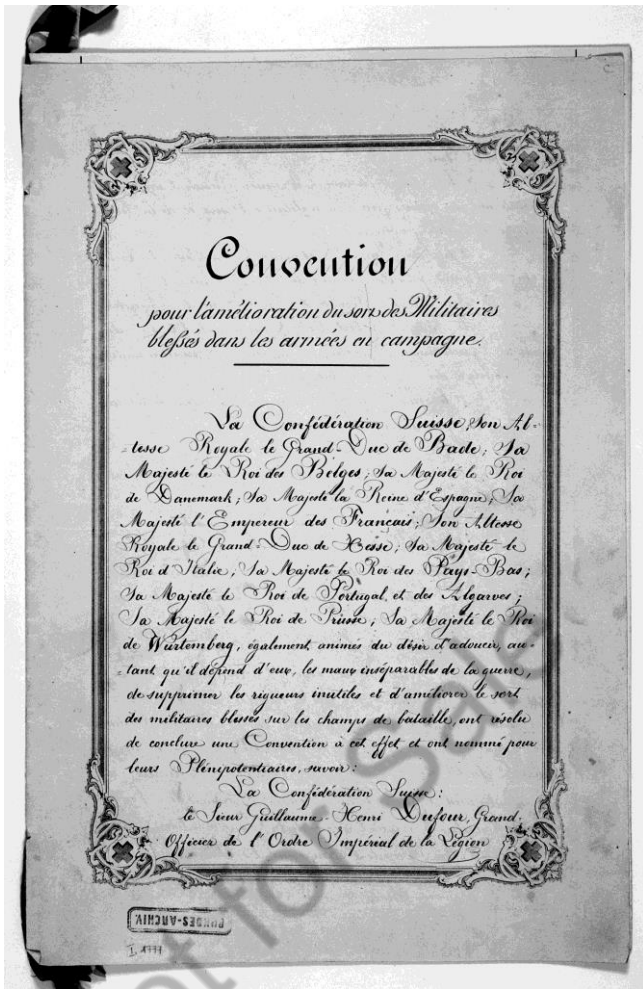 Convention
pour l'amélioration du sort des Militaires
blessés dans les armées en campagne.
La Confédération Suisse; Son Al-
-tesse Royale le Grand-Duc de Bade; Sa
Majesté le Roi des Belges; Sa Majesté le Roi
de Danemark; Sa Majesté la Reine d'Espagne; Sa
Majesté l'Empereur des Français; Son Altesse
Royale le Grand-Duc de Hesse; Sa Majesté le
Roi d'Italie; Sa Majesté le Roi des Pays-Bas;
Sa Majesté le Roi de Portugal et des Algarves;
Sa Majesté le Roi de Prusse; Sa Majesté le Roi
de Würtemberg, également animés du désir d'adoucir, au-
-tant qu'il dépend d'eux, les maux inséparables de la guerre,
de supprimer les rigueurs inutiles et d'améliorer le sort
des militaires blessés sur les champs de bataille, ont résolu
de conclure une Convention à cet effet et ont nommé pour
leurs Plénipotentiaires, savoir:
La Confédération Suisse:
le Sieur Guillaume-Henri Dufour, Grand
Officier de l'Ordre Impérial de la Légion
BUNDES-ARCHIV
not for Sale